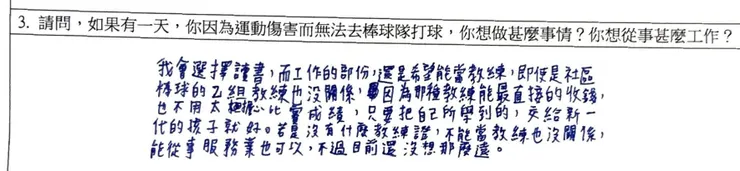 3. 請問，如果有一天，你因為運動傷害而無法去棒球隊打球，你想做甚麼事情？你想從事甚麼工作？
我會選擇讀書，而工作的部份，還是希望能當教練，即使是社區
棒球的乙組教練也沒關係，因為那種教練能最直接的收錢，
也不用太擔心比賽成績，只要把自己所學到的，交給新一
代的孩子就好。若是沒有什麼教練證，不能當教練也沒關係，
能從事服務業也可以，不過目前還沒想那麼遠。